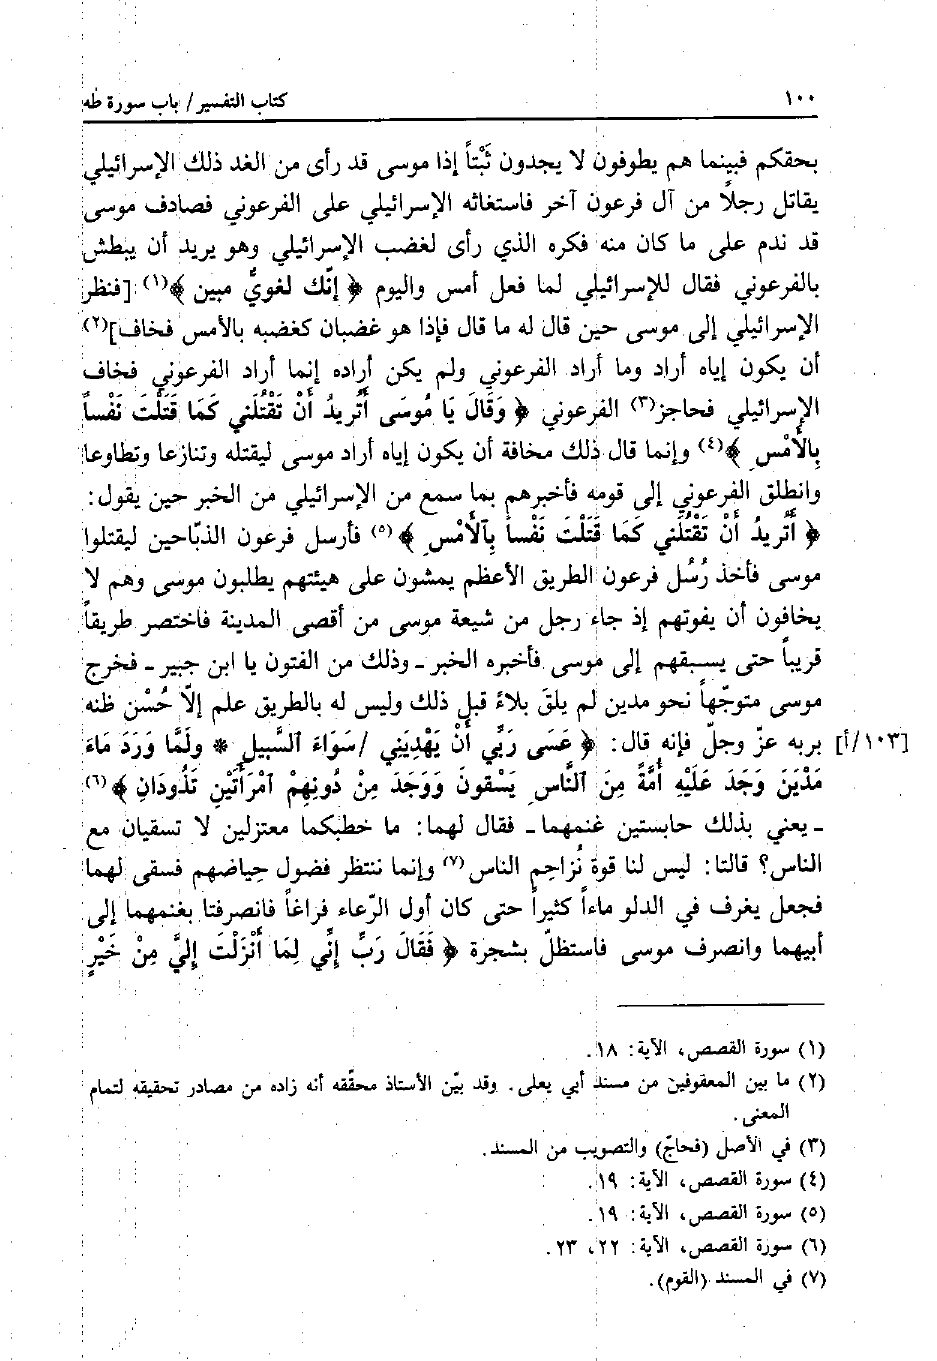 ١٠٠ كتاب التفسير / باب سورة طه
بحقكم فبينما هم يطوفون لا يجدون ثَبْتاً إذا موسى قد رأى من الغد ذلك الإسرائيلي
يقاتل رجلاً من آل فرعون آخر فاستغاثه الإسرائيلي على الفرعوني فصادف موسى
قد ندم على ما كان منه فكره الذي رأى لغضب الإسرائيلي وهو يريد أن يبطش
بالفرعوني فقال للإسرائيلي لما فعل أمس واليوم ﴿ إنّك لغويٌّ مبين ﴾(١) [فنظر
الإسرائيلي إلى موسى حين قال له ما قال فإذا هو غضبان كغضبه بالأمس فخاف](٢)
أن يكون إياه أراد وما أراد الفرعوني ولم يكن أراده إنما أراد الفرعوني فخاف
الإسرائيلي فحاجز(٣) الفرعوني ﴿ وَقَالَ يَا مُوسَى أَتُرِيدُ أَنْ تَقْتُلَني كَمَا قَتَلْتَ نَفْساً
بِالأَمْسِ ﴾(٤) وإنما قال ذلك مخافة أن يكون إياه أراد موسى ليقتله وتنازعا وتطاوعا
وانطلق الفرعوني إلى قومه فأخبرهم بما سمع من الإسرائيلي من الخبر حين يقول:
﴿ أَتُرِيدُ أَنْ تَقْتُلَني كَمَا قَتَلْتَ نَفْساً بِآلأَمْسِ ﴾(٥) فأرسل فرعون الذبّاحين ليقتلوا
موسى فأخذ رُسُل فرعون الطريق الأعظم يمشون على هيئتهم يطلبون موسى وهم لا
يخافون أن يفوتهم إذ جاء رجل من شيعة موسى من أقصى المدينة فاختصر طريقاً
قريباً حتى يسبقهم إلى موسى فأخبره الخبر ـ وذلك من الفتون يا ابن جبير ـ فخرج
موسى متوجّهاً نحو مدين لم يلقَ بلاءً قبل ذلك وليس له بالطريق علم إلاّ حُسْن ظنه
[١٠٣/أ] بربه عزّ وجلّ فإنه قال: ﴿ عَسَى رَبِّي أَنْ يَهْدِيَنِي /سَوَاءَ آلسَّبيلِ * ولَمَّا وَرَدَ مَاءَ
مَدْيَنَ وَجَدَ عَلَيْهِ أُمَّةً مِنَ آلنَّاسِ يَسْقونَ وَوَجَدَ مِنْ دُونِهِمْ آمْرَأَتَيْنِ تَذُودَانِ ﴾(٦)
ـ يعني بذلك حابستين غنمهما ـ فقال لهما: ما خطبكما معتزلين لا تسقيان مع
الناس؟ قالتا: ليس لنا قوة نُزاحِم الناس(٧) وإنما ننتظر فضول حِياضهم فسقى لهما
فجعل يغرف في الدلو ماءاً كثيراً حتى كان أول الرّعاء فراغاً فانصرفتا بغنمهما إلى
أبيهما وانصرف موسى فاستظلّ بشجرة ﴿ فَقَالَ رَبِّ إِنِّي لِمَا أَنْزَلْتَ إِلَيَّ مِنْ خَيْرٍ
(١) سورة القصص، الآية: ١٨.
(٢) ما بين المعقوفين من مسند أبي يعلى. وقد بيّن الأستاذ محقّقه أنه زاده من مصادر تحقيقه لتمام
المعنى.
(٣) في الأصل (فحاجّ) والتصويب من المسند.
(٤) سورة القصص، الآية: ١٩.
(٥) سورة القصص، الآية: ١٩.
(٦) سورة القصص، الآية: ٢٢، ٢٣.
(٧) في المسند (القوم).